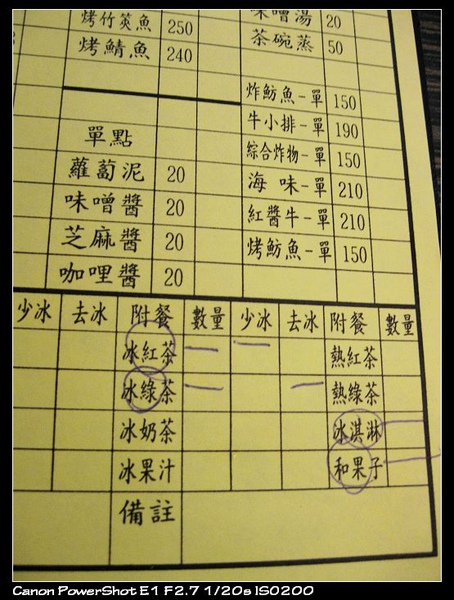 烤竹筴魚 250 味噌湯 20
烤鯖魚 240 茶碗蒸 50
炸魴魚-單 150
牛小排-單 190
單點 綜合炸物-單 150
蘿蔔泥 20 海味-單 210
味噌醬 20 紅醬牛-單 210
芝麻醬 20 烤魴魚-單 150
咖哩醬 20
少冰 去冰 附餐 數量 少冰 去冰 附餐 數量
冰紅茶 熱紅茶
冰綠茶 熱綠茶
冰奶茶 冰淇淋
冰果汁 和果子
備註
Canon PowerShot E1 F2.7 1/20s ISO200